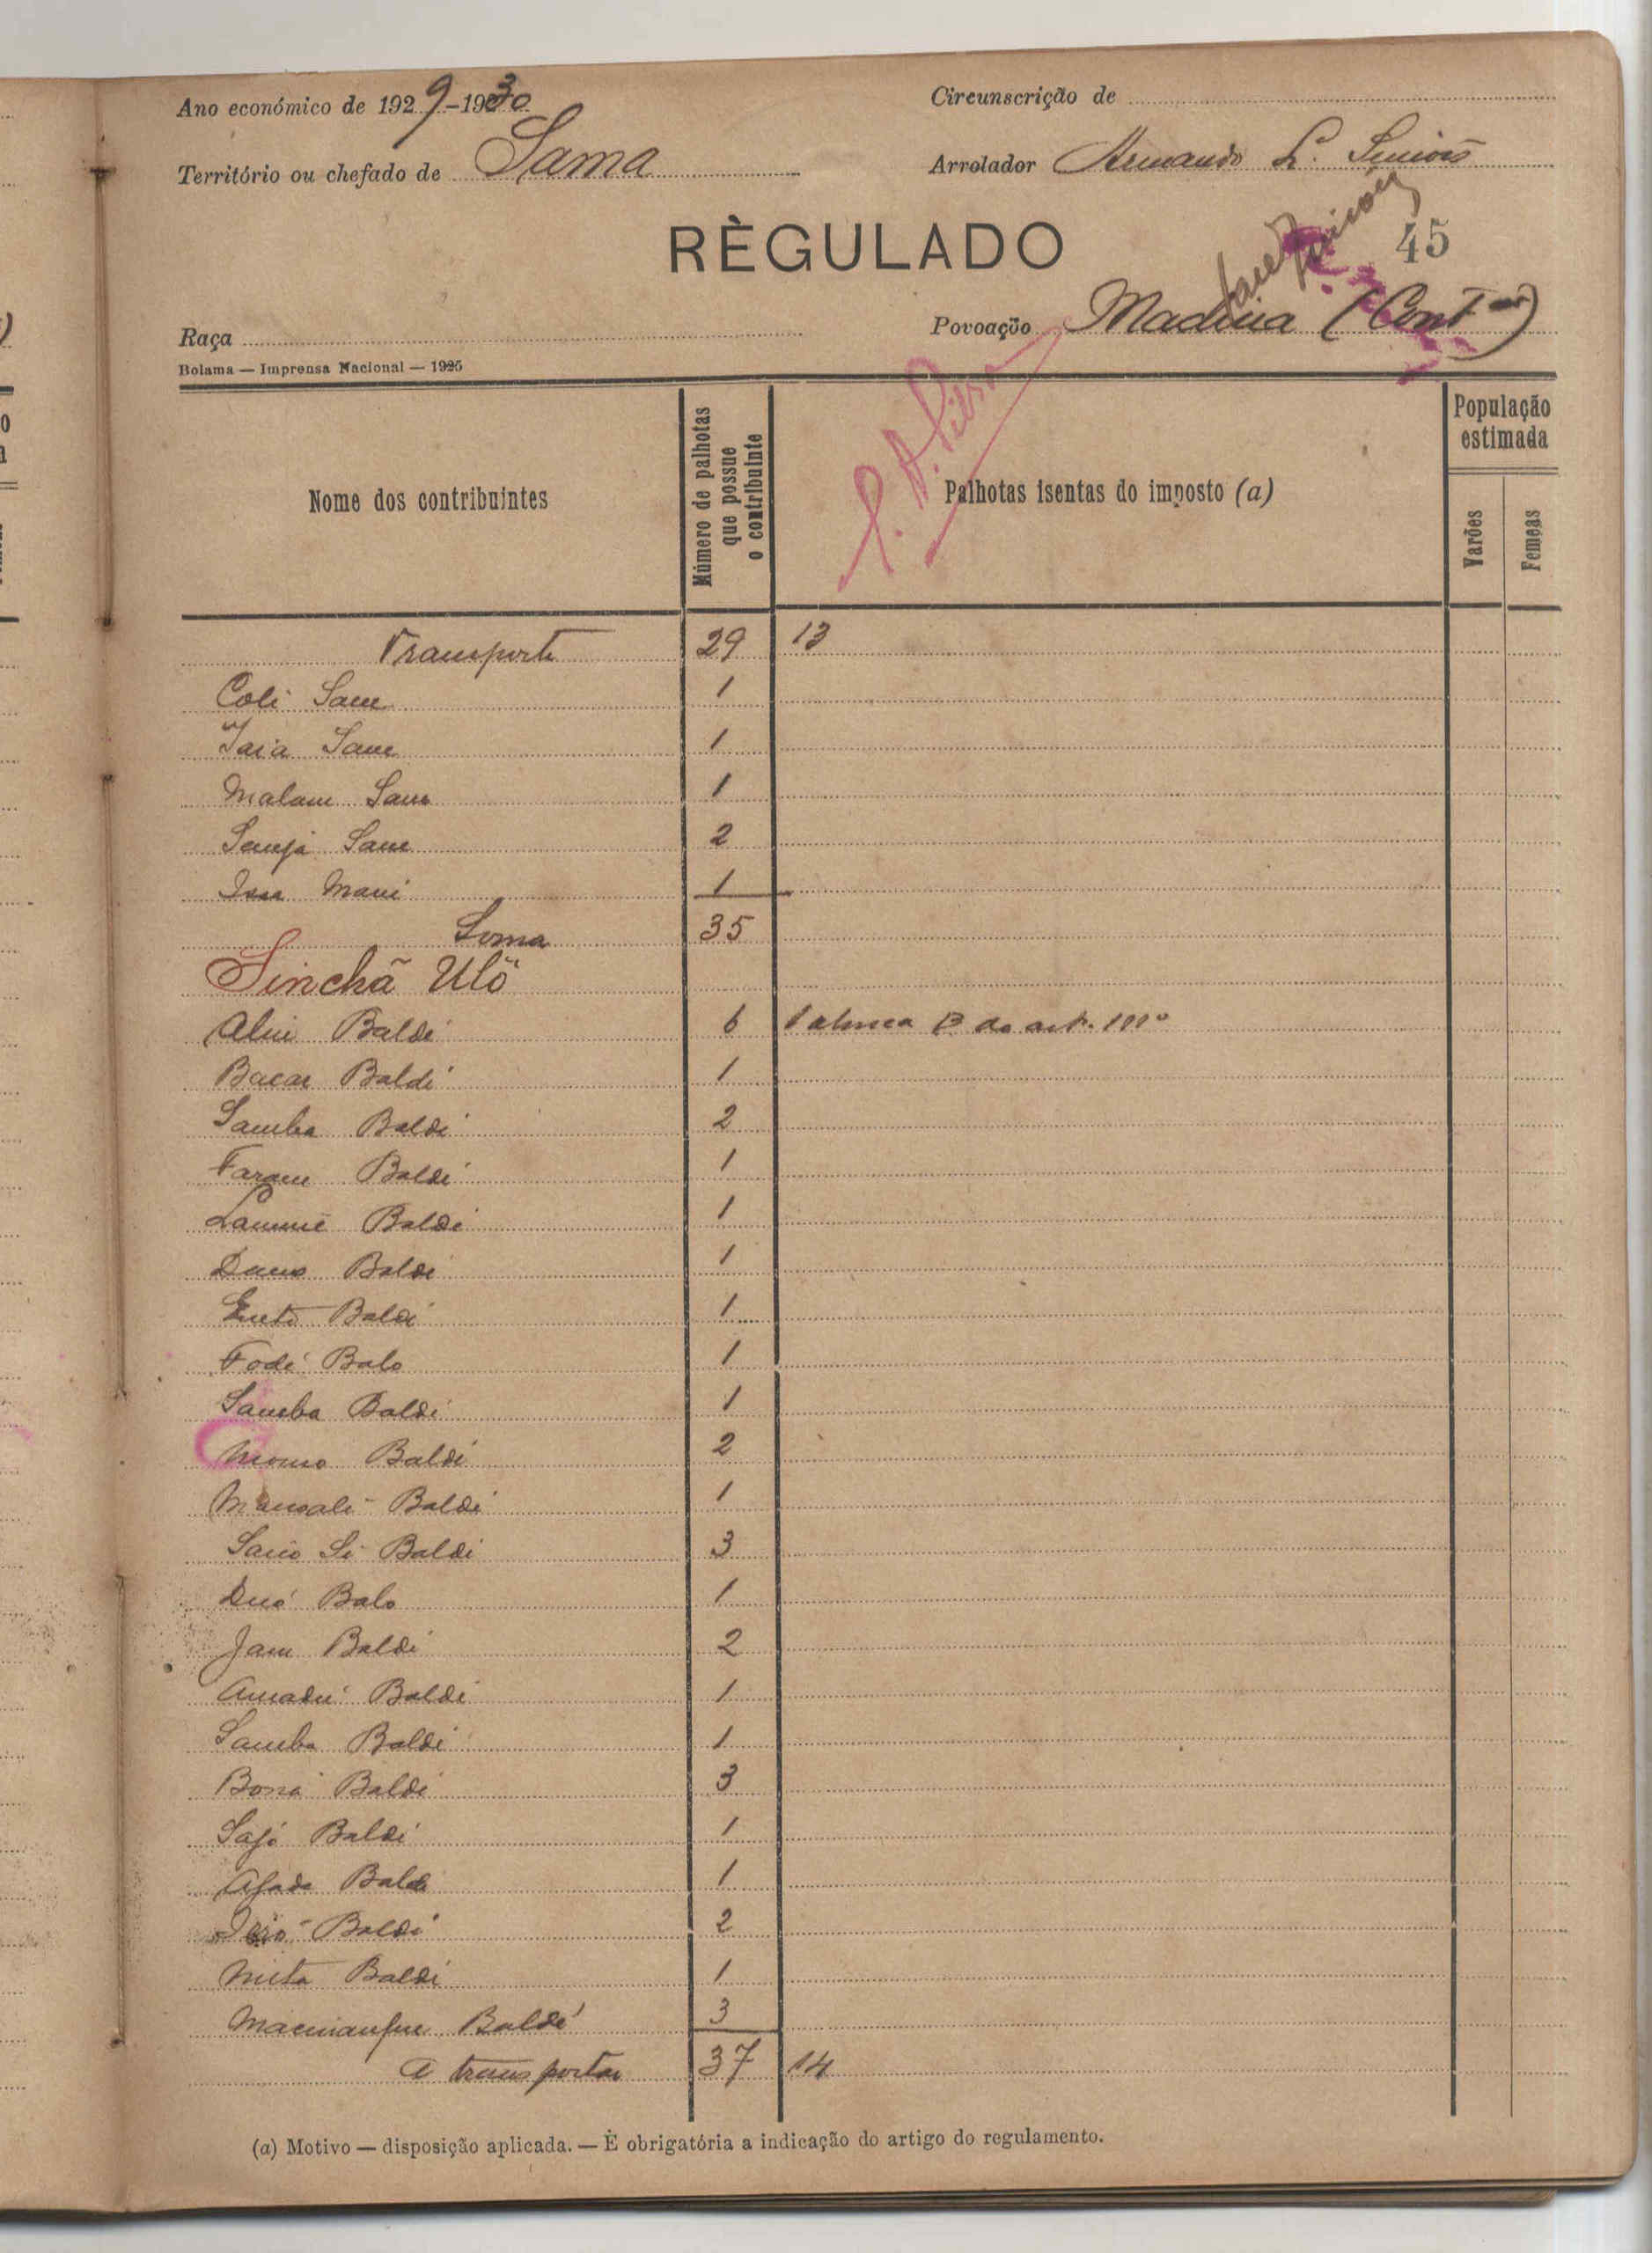 Ano económico de 1929-1930
Circunscrição de
Território ou chefado de Sama
Arrolador Armando L.
RÈGULADO
45
Raça
Povoação Madina (Cont ão)
Bolama — Imprensa Nacional — 1925
Nome dos contribuintes
Número de palhotas que possue o contribuinte
Palhotas isentas do imposto (a)
População estimada
Varões
Femeas
Transporte 29 13
Coli Sane 1
Iaia Sane 1
Malam Sane 1
Sanjá Sane 2
Issa Mani 1
Soma 35
Sinchã Ulô
Baldé 6 1 alinea B do art. 111º
Bacar Baldé 1
Samba Baldé 2
Faram Baldé 1
Baldé 1
Baldé 1
Baldé 1
Fodé Balo 1
Samba Baldé 1
Momo Baldé 2
Mansali Baldé 1
Baldé 3
Balo 1
Jam Baldé 2
Amadú Baldé 1
Samba Baldé 1
Bona Baldé 3
Sajó Baldé 1
Baldé 1
Baldé 2
Baldé 1
Baldé 3
A transportar 37 14
(a) Motivo — disposição aplicada. — È obrigatória a indicação do artigo do regulamento.